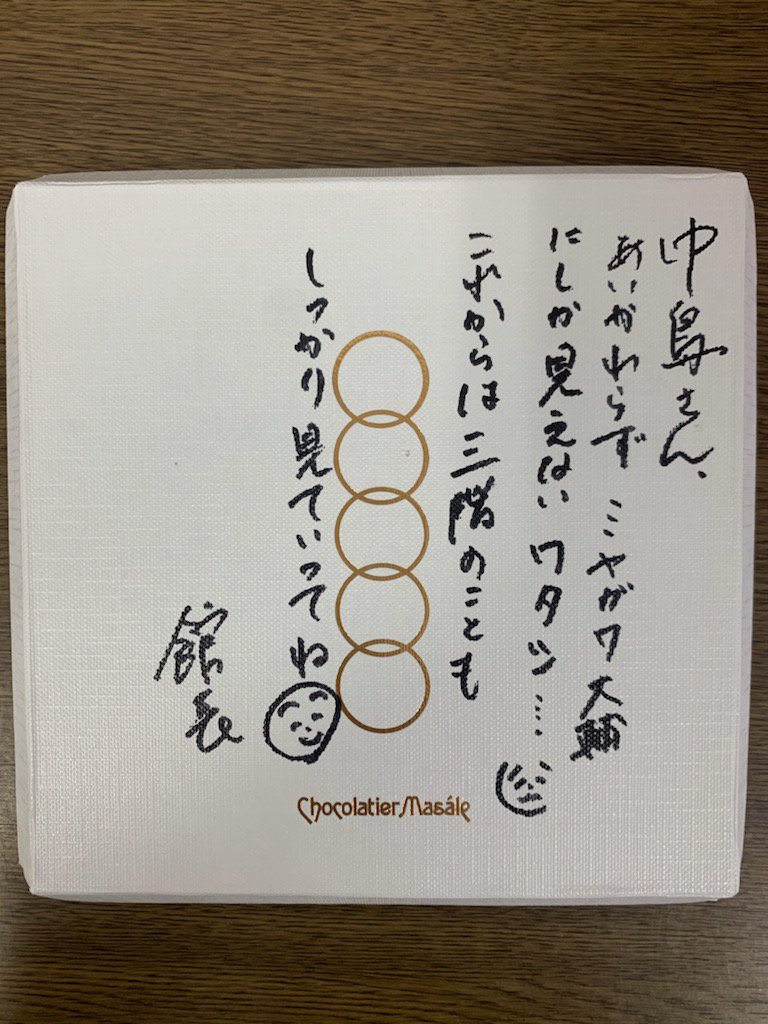 中島さん、
あいかわらず ミヤガワ大輔
にしか見えない ワタシ‥‥
これからは三階のことも
しっかり見ていってね
館長
Chocolatier Masále